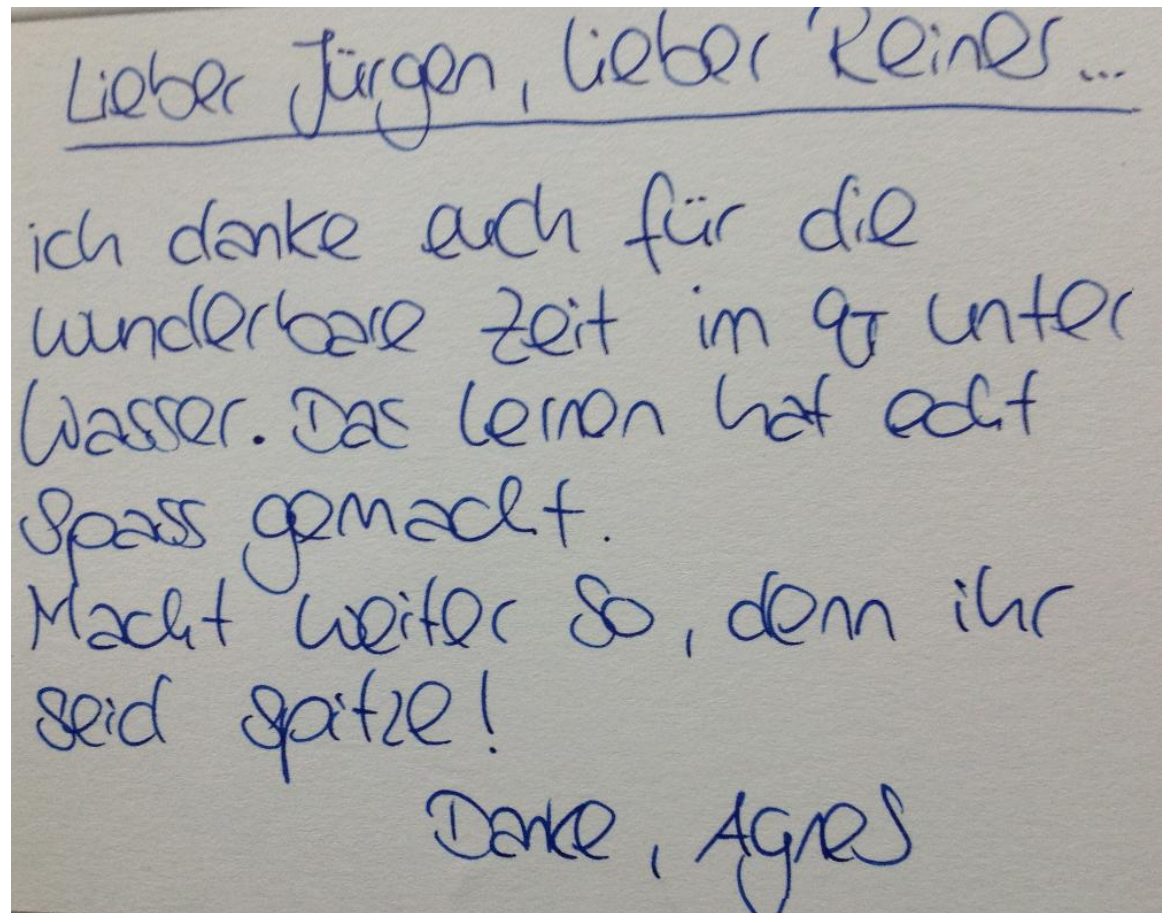 Lieber Jürgen, lieber Reiner...
ich danke euch für die
wunderbare Zeit im unter
Wasser. Das lernen hat echt
Spass gemacht.
Macht weiter so, denn ihr
seid spitze!
Danke, Agnes